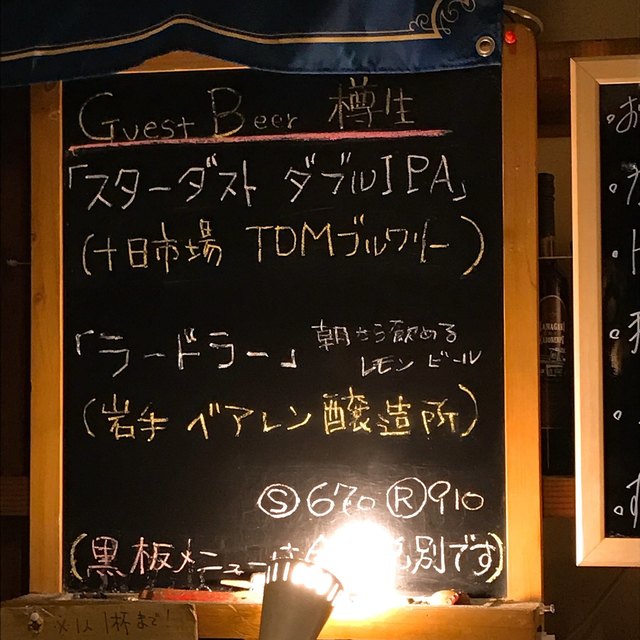 Guest Beer 樽生
「スターダスト ダブルIPA」
(十日市場 TDMブルワリー)
「ラードラー」 朝から飲める
レモン ビール
(岩手 ベアレン醸造所)
Ⓢ670 Ⓡ910
(黒板メニューは 税別です)
1杯まで!